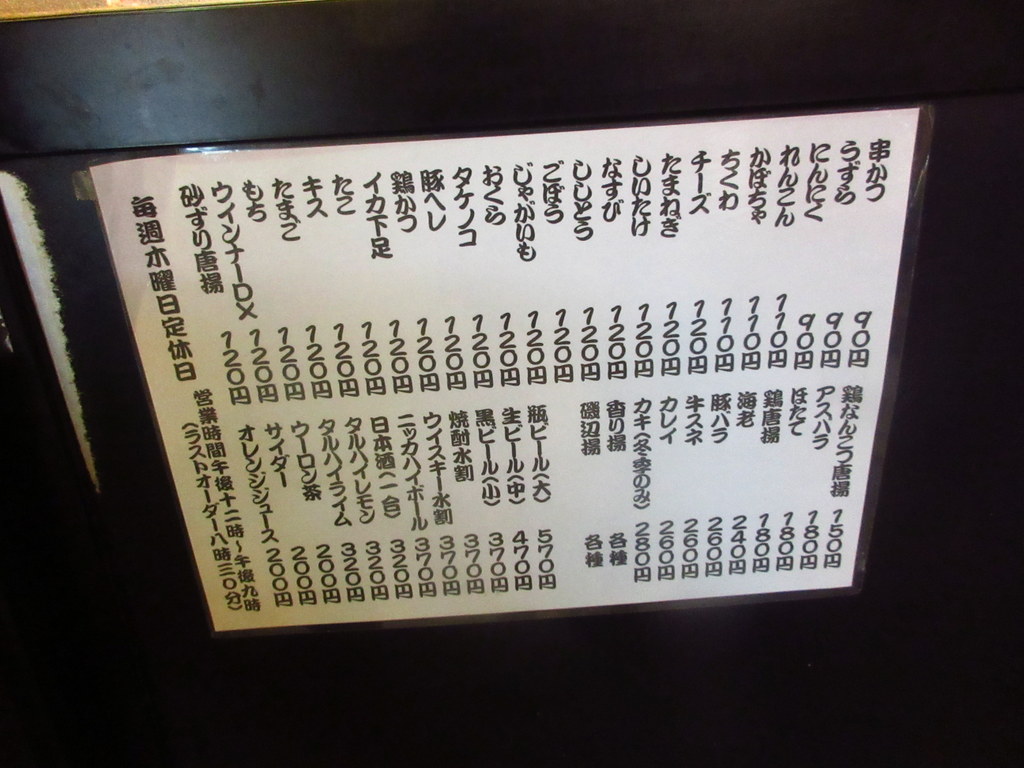 串かつ 90円
うずら 90円
にんにく 90円
れんこん 110円
かぼちゃ 110円
ちくわ 110円
チーズ 120円
たまねぎ 120円
しいたけ 120円
なすび 120円
ししとう 120円
ごぼう 120円
じゃがいも 120円
おくら 120円
タケノコ 120円
豚ヘレ 120円
鶏かつ 120円
イカ下足 120円
たこ 120円
キス 120円
たまご 120円
もち 120円
ウインナーDX 120円
砂ずり唐揚 120円
鶏なんこつ唐揚 150円
アスパラ 180円
ほたて 180円
鶏唐揚 180円
海老 240円
豚バラ 260円
牛スネ 260円
カレイ 260円
カキ(冬季のみ) 280円
香り揚 各種
磯辺揚 各種
瓶ビール(大) 570円
生ビール(中) 470円
黒ビール(小) 370円
焼酎水割 370円
ウイスキー水割 370円
ニッカハイボール 370円
日本酒(一合) 320円
タルハイレモン 320円
タルハイライム 320円
ウーロン茶 200円
サイダー 200円
オレンジジュース 200円
毎週木曜日定休日
営業時間午後十二時〜午後九時
(ラストオーダー八時三〇分)